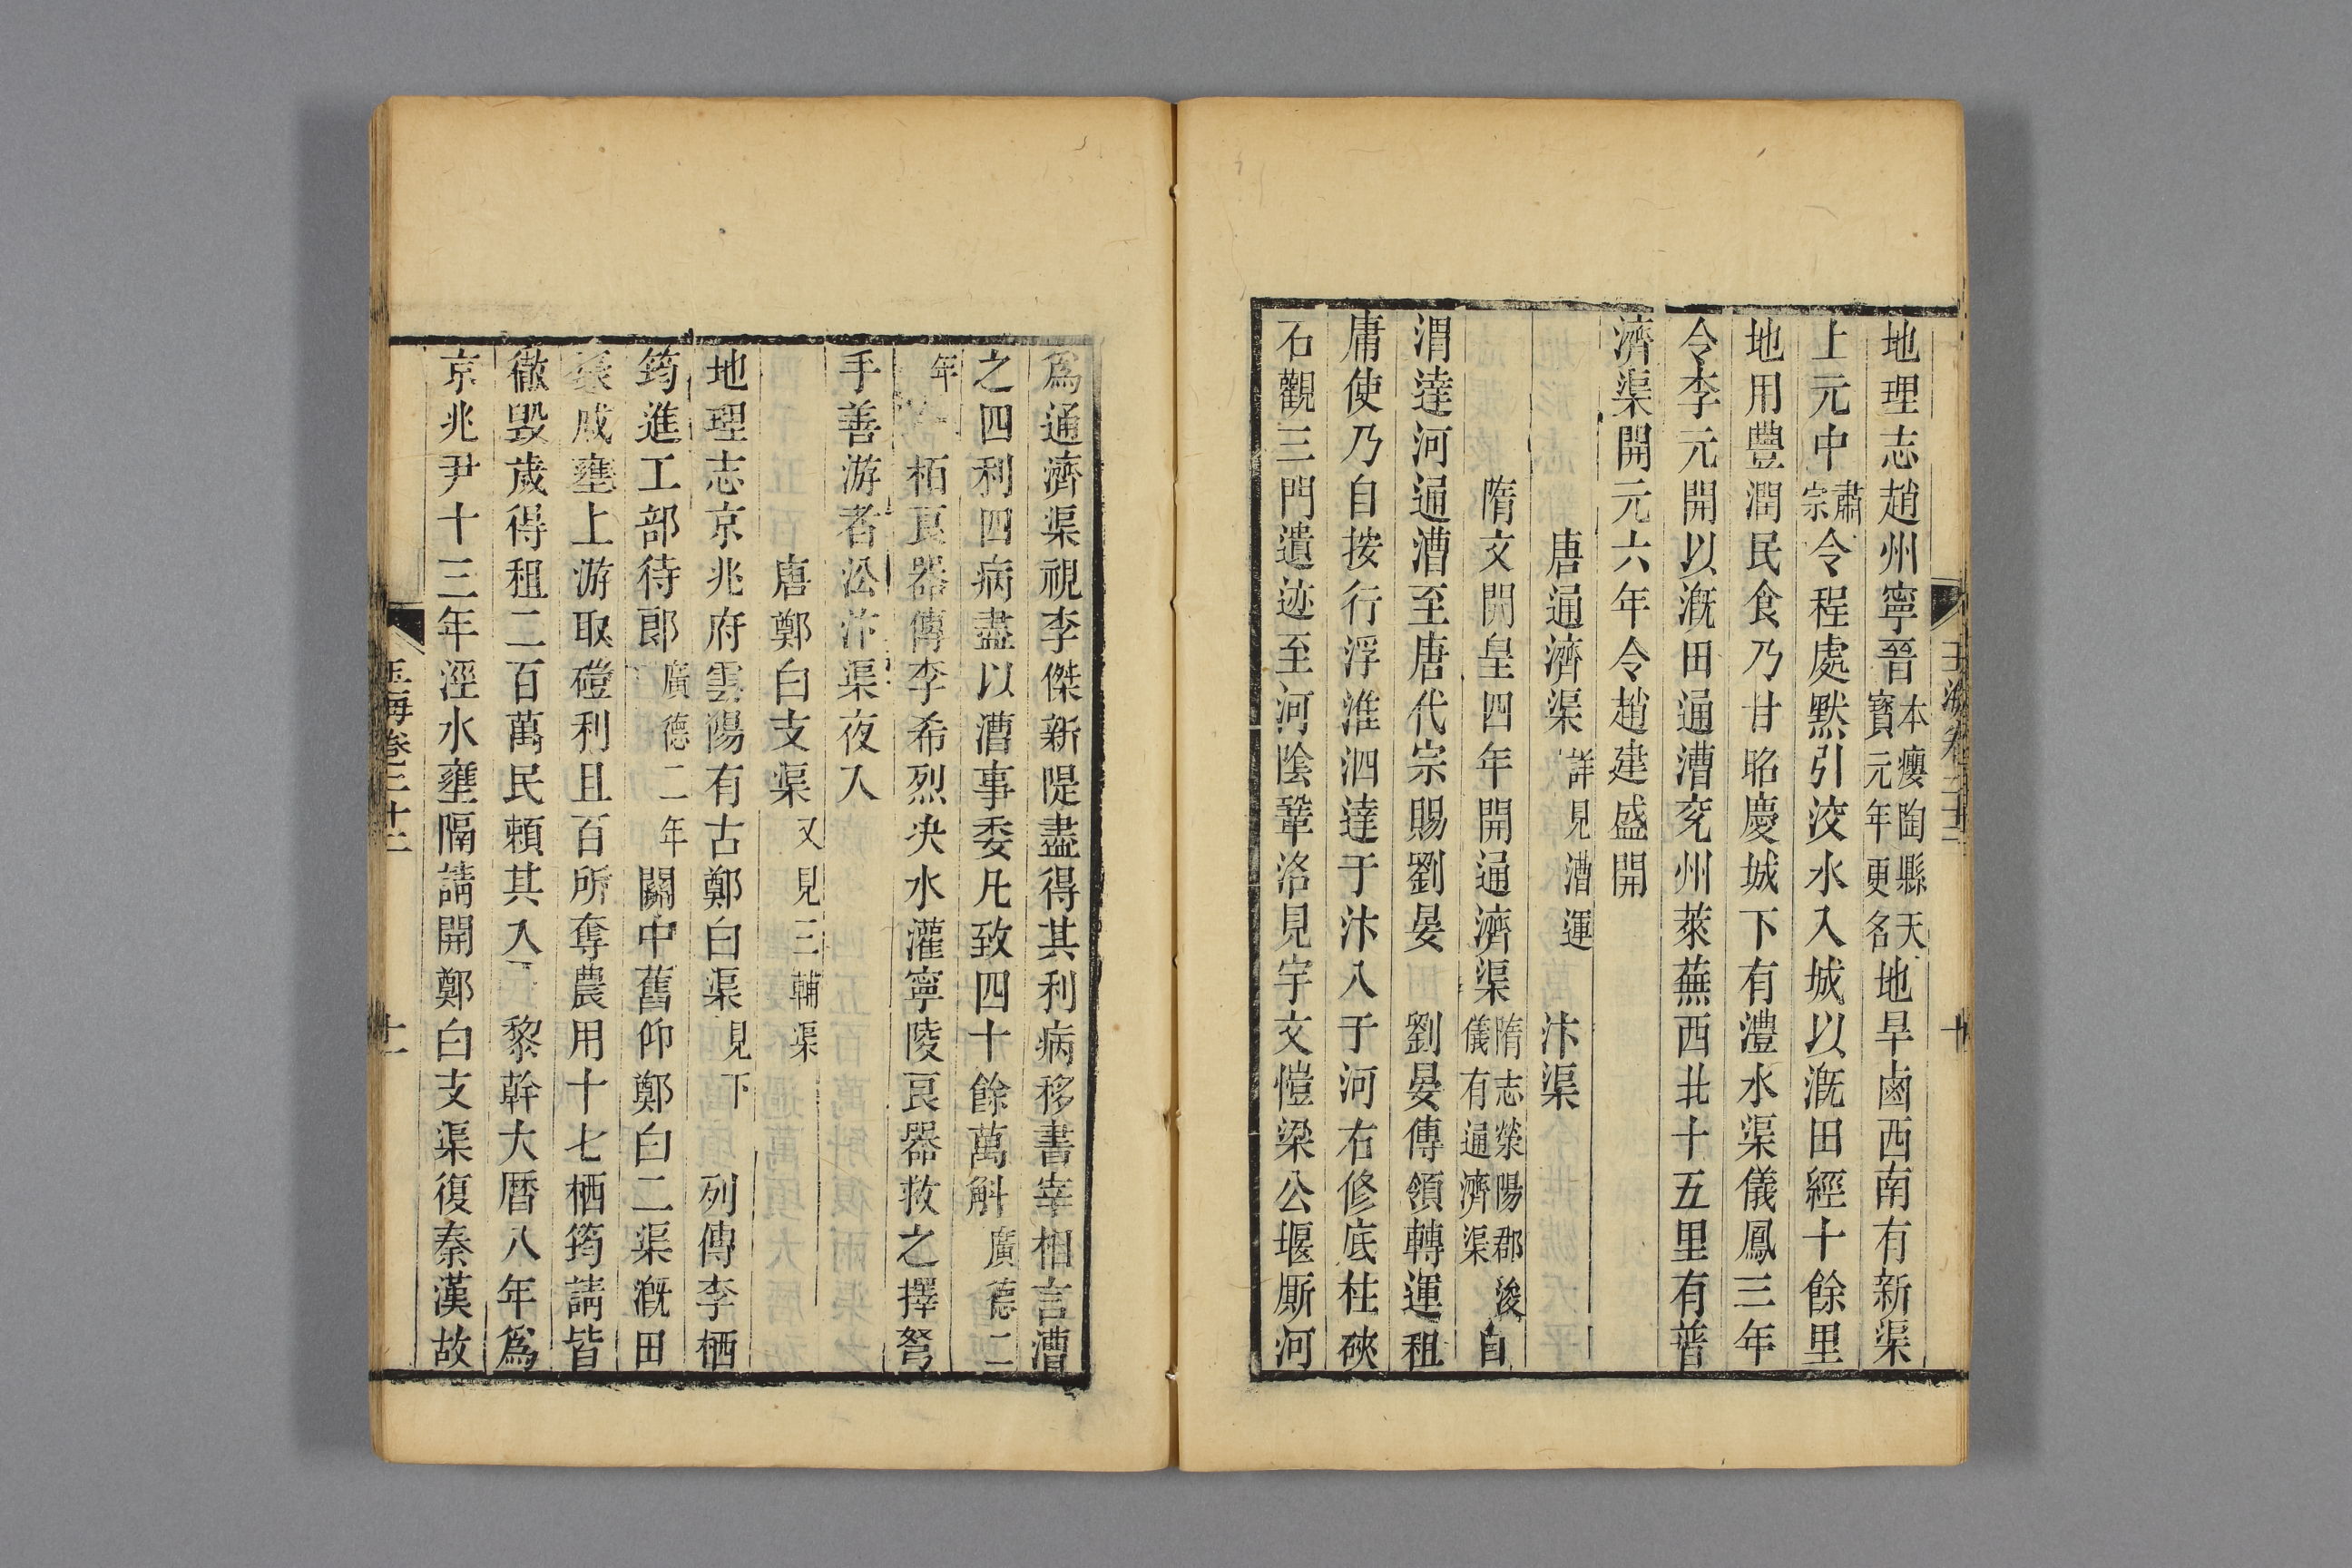 地理志趙州寧晉本癭陶縣天寶元年更名地旱鹵西南有新渠
上元中肅宗令程處默引洨水入城以漑田經十餘里
地用豐潤民食乃甘昭慶城下有澧水渠儀鳳三年
令李元開以漑田通漕兖州萊蕪西北十五里有普
濟渠開元六年令趙建盛開
唐通濟渠詳見漕運 汴渠
隋文開皇四年開通濟渠隋志滎陽郡浚儀有通濟渠自
渭達河通漕至唐代宗賜劉晏 劉晏傳領轉運租
庸使乃自按行浮淮泗達于汴入于河右修底柱硤
石觀三門遺迹至河陰鞏洛見宇文愷梁公堰厮河
爲通濟渠視李傑新隄盡得其利病移書宰相言漕
之四利四病盡以漕事委凡致四十餘萬斛廣德二
年 栢良器傳李希烈决水灌寧陵良器救之擇弩
手善游者㳂汴渠夜入
唐鄭白支渠又見三輔渠
地理志京兆府雲陽有古鄭白渠見下 列傳李栖
筠進工部侍郎廣德二年關中舊仰鄭白二渠漑田
戚壅上游取磑利且百所奪農用十七栖筠請皆
徹毁歲得租二百萬民賴其入 黎幹大曆八年爲
京兆尹十三年涇水壅隔請開鄭白支渠復秦漢故
玉海卷二十二
十一